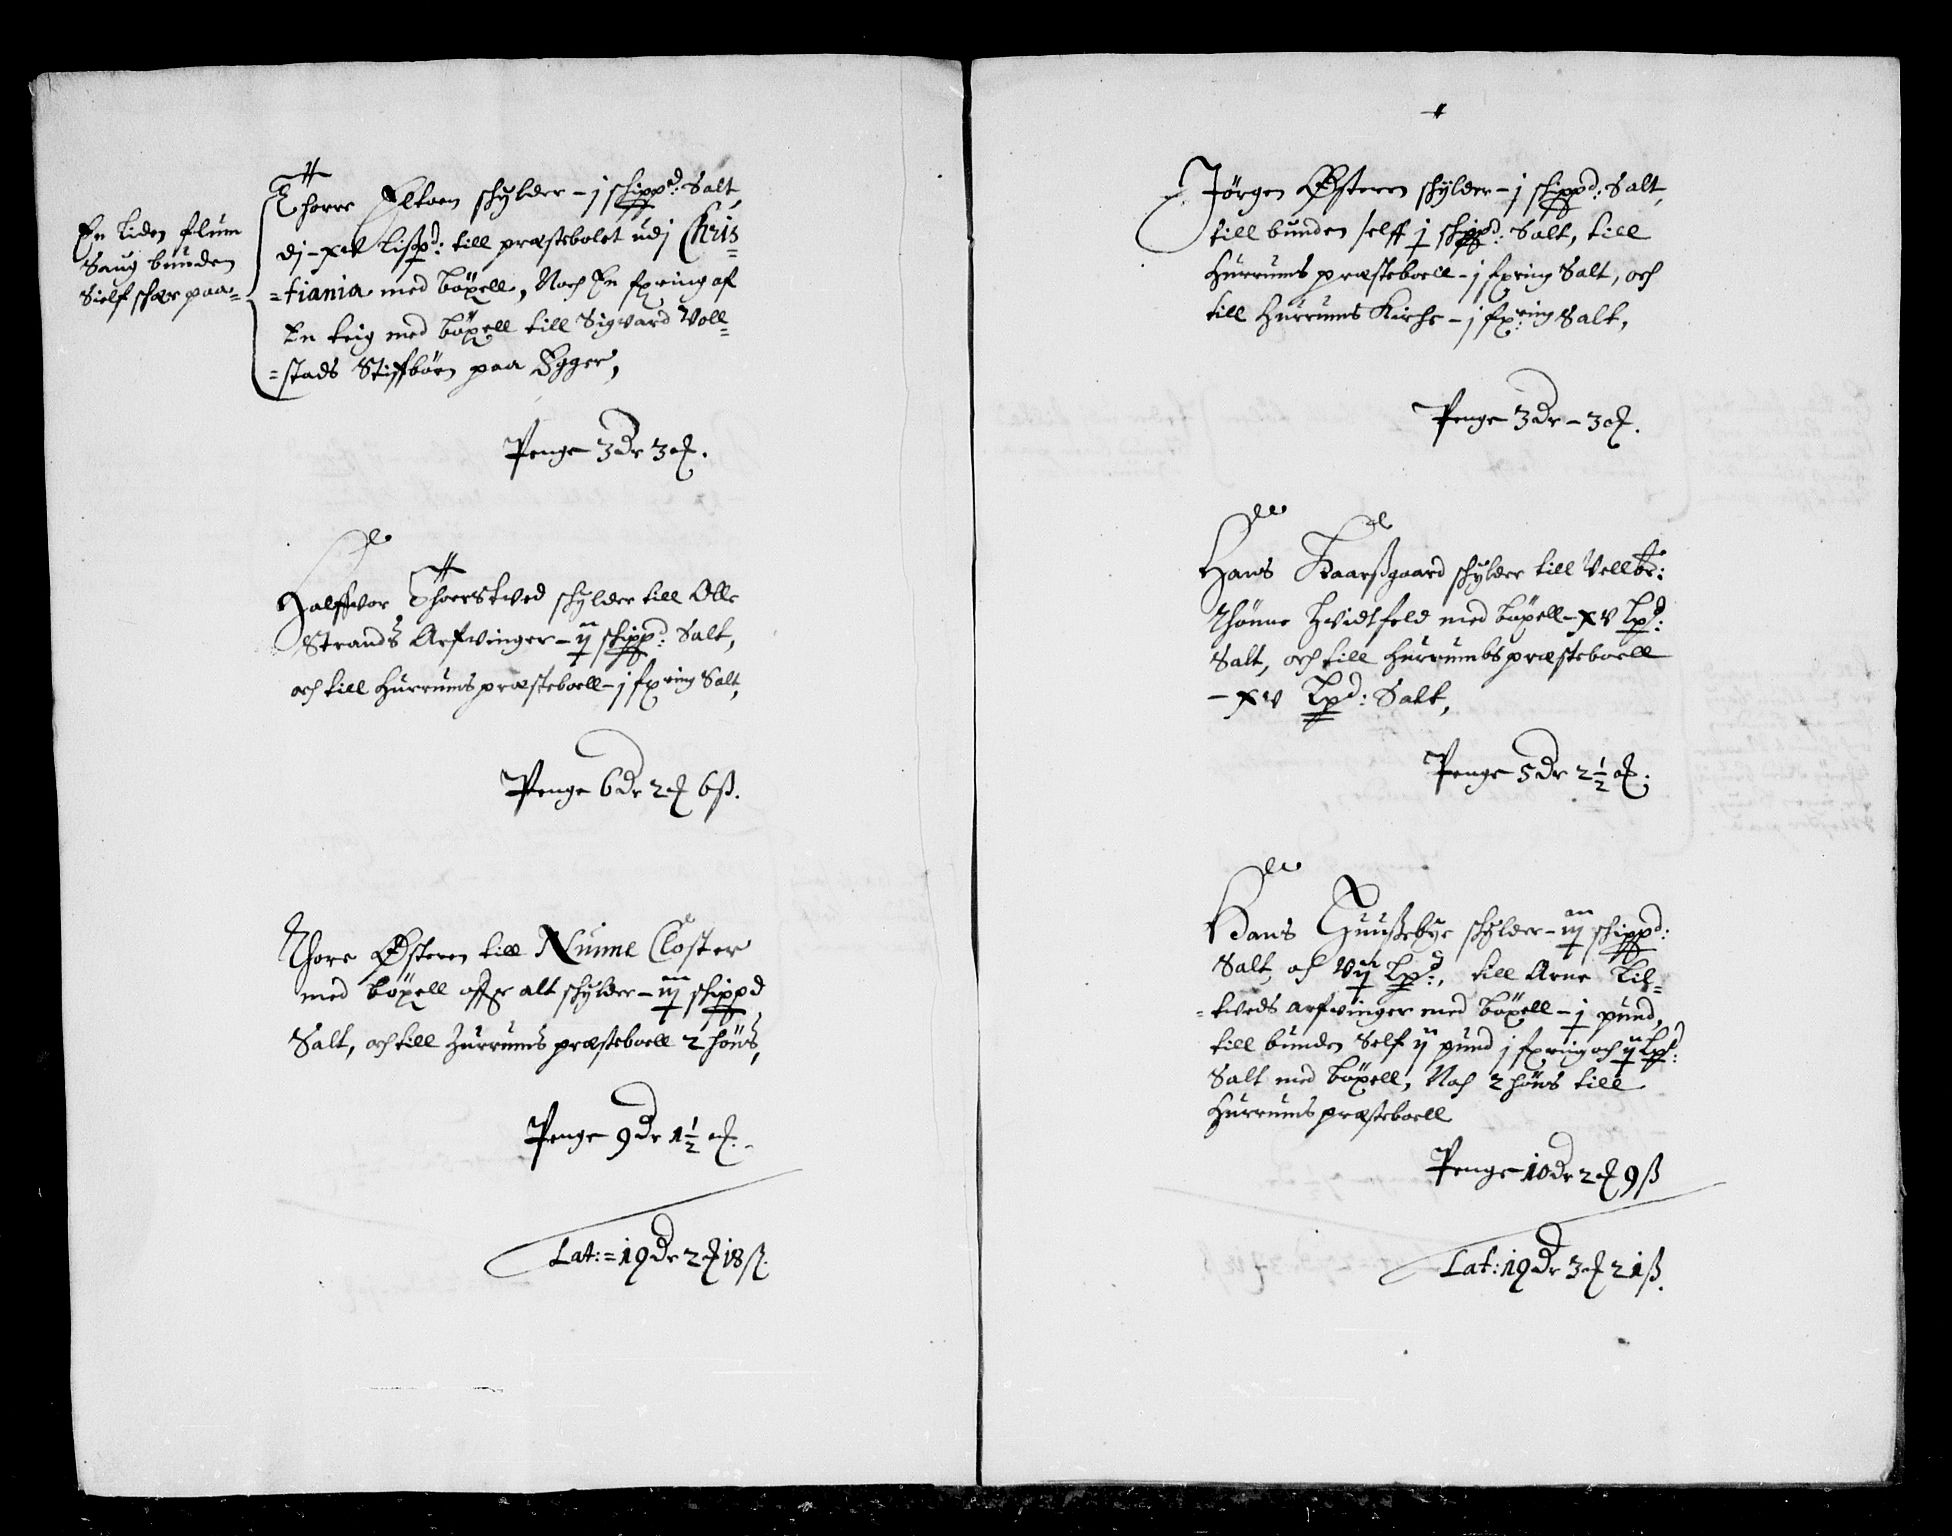 En liden flum
Saug bunden
Sielf schær paa=
Thorre Eltoen schylder – j schippd: Salt,
dj – xv Lispd: till præstebolet udj Chris=
=tiania med böxell, Noch En fxring af
En teig med böxell till Sigvard Voll=
=stads Stiffbörn paa Egger,
Penge 3 Dr 3 ort.
Halffvor Thoerstved schylder till Olle
Strands Arfvinger – ij schippd: Salt,
och till Hurrums præsteboell – j fxring Salt,
Penge 6 Dr 2 ort 6 ß.
Thore Østeren till Nunne Closter
med böxell offr alt schylder – iij schippd
Salt, och till Hurrums præsteboell 2 höns,
Penge 9 Dr 1½ ort.
Lat: = 19 Dr 2 ort 18 ß.
Jörgen Østeren schylder – j schippd: Salt,
till bunden self j schippd: Salt, till
Hurrums præsteboell – j fxring Salt, och
till Hurrums Kirche – j fx:ring Salt,
Penge 3 Dr – 3 ort.
Hans Kaarßgaard schylder till Vellbr:
Thönne Hvidtfeld med böxell – xv Lpd:
Salt, och till Hurrumbs præsteboell
– xv Lpd: Salt,
Penge 5 Dr 2½ ort.
Hans Guußebye schylder – iij schippd:
Salt, och vij Lpd:, till Arne Lil=
=tveds arfvinger med böxell – j pund,
till bunden Self ij pund j fxring och ij Lpd:
Salt med böxell, Noch 2 höns till
Hurrums præsteboell
Penge 10 Dr 2 ort 9 ß
Lat: 19 Dr 3 ort 21 ß.